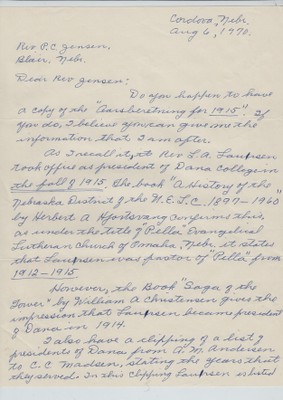 Cordova, Nebr.
Aug 6, 1970.
Rev P.C. Jensen,
Blair, Nebr.
Dear Rev Jensen:
Do you happen to have
a copy of the "Aarsberetning for 1915". If
you do, I believe you can give me the
information that I am after.
As I recall it, Rev L.A. Laursen
took office as president of Dana College in
the fall of 1915. The book "A History of the
Nebraska District of the U.E.L.C. 1897-1960"
by Herbert A Hjortsvang confirms this
as under the title of "Pella" Evangelical
Lutheran Church of Omaha, Nebr. it states
that Laursen was pastor of "Pella" from
1912-1915.
However, the Book "Saga of the
Tower" by William A Christensen gives the
impression that Laursen became president
of Dana in 1914.
I also have a clipping of a list of
presidents of Dana from A.M. Andersen
to C.C. Madsen, stating the years that
they served. In this clipping Laursen is listed